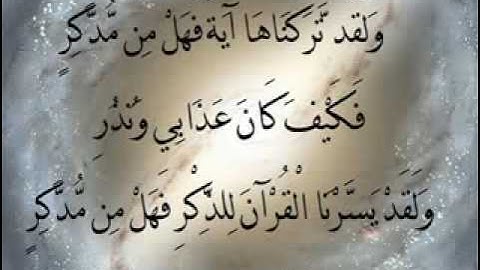 وَلَقد تَّرَكْنَاهَا آيَة فَهَلْ مِن مُّدَّكِرٍ
فَكَيْفَ كَانَ عَذَابِي وَنُذُرِ
وَلَقَدْ يَسَّرْنَا الْقُرْآنَ لِلذِّكْرِ فَهَلْ مِن مُّدَّكِرٍ